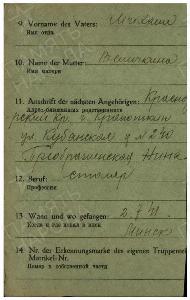 9. Vorname des Vaters: Михаил
Имя отца
10. Name der Mutter:
Имя матери
11. Anschrift der nächsten Angehörigen: Красно
Адрес ближайших родственников
г. Кропоткин
ул. Кубанская д №240
Преображенская Нина
12. Beruf: столяр
Профессия
13. Wann und wo gefangen: 2.7.41
Когда и где взят в плен
Минск
14. Nr. der Erkennungsmarke des eigenen Truppenteils
Matrikel-Nr.
Номер в собственной части